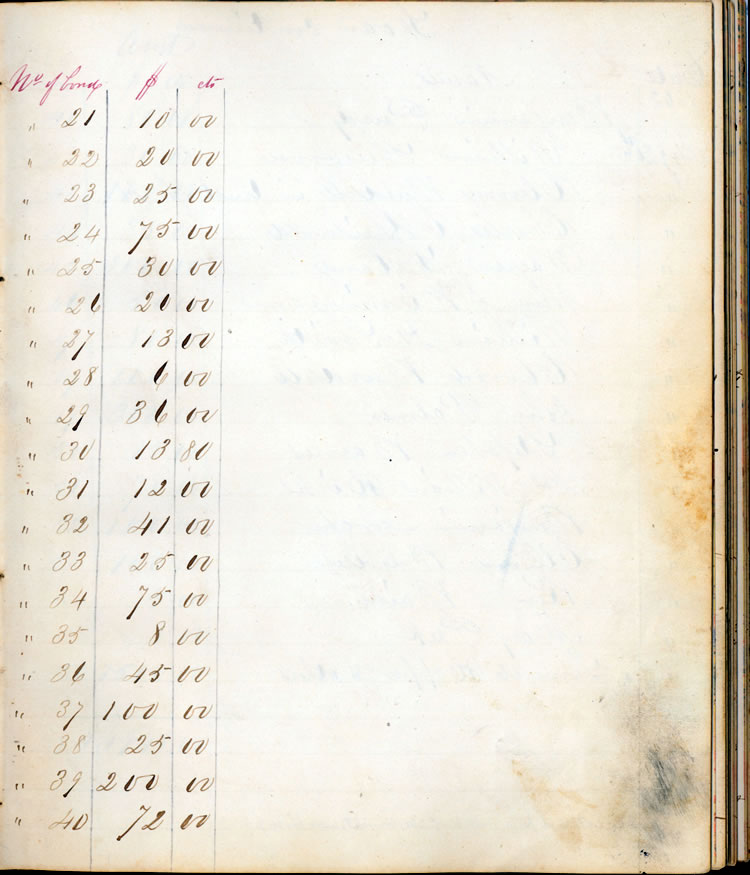 No of bond $ cts
" 21 10 00
" 22 20 00
" 23 25 00
" 24 75 00
" 25 30 00
" 26 20 00
" 27 13 00
" 28 6 00
" 29 36 00
" 30 13 80
" 31 12 00
" 32 41 00
" 33 25 00
" 34 75 00
" 35 8 00
" 36 45 00
" 37 100 00
" 38 25 00
" 39 200 00
" 40 72 00